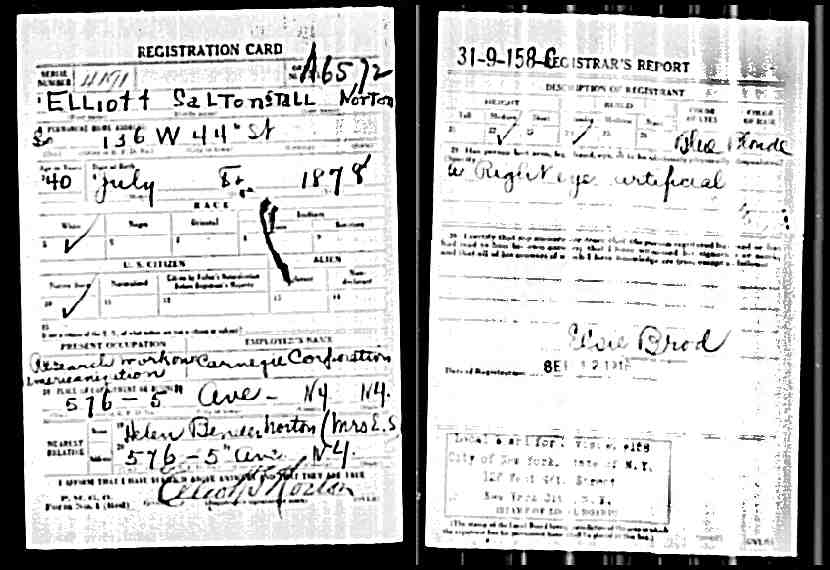 REGISTRATION CARD
SERIAL NUMBER 4191
A6572
Elliott Saltonstall Norton
PERMANENT HOME ADDRESS
136 W 44" St
Age in Years Date of Birth
40 July 8th 1878
RACE
White Negro Oriental Indian
5 ✓ 6
U. S. CITIZEN ALIEN
Native Born Naturalized Citizen by Father's Naturalization Before Registrant's Majority
10 ✓ 11 12 13 14
15
PRESENT OCCUPATION EMPLOYER'S NAME
Research work on Carnegie Corporation
Americanization
PLACE OF EMPLOYMENT OR BUSINESS
576 - 5" Ave - NY NY.
NEAREST RELATIVE
Name Helen Bender Norton (Mrs E.S.
Address 576 - 5" Ave NY.
I AFFIRM THAT I HAVE VERIFIED ABOVE ANSWERS AND THAT THEY ARE TRUE
P. M. G. O.
Form No. 1 (Red)
Elliott S Norton
31-9-158-C
REGISTRAR'S REPORT
DESCRIPTION OF REGISTRANT
HEIGHT BUILD COLOR OF EYES COLOR OF HAIR
Tall Medium Short
21 22 ✓ 23
Blue Blonde
29 Has person lost arm, leg, hand, eye, or is he obviously physically disqualified?
(Specify)
Right eye artificial
30. I certify that my answers are true; that the person registered has read or has
had read to him his own answers; that I have witnessed his signature or mark,
and that all of his answers of which I have knowledge are true, except as follows:
Elsie Brod
Date of Registration SEP 12 1918
City of New York, State of N.Y.
Street
New York City, N.Y.
(STAMP OF LOCAL BOARD)
(The stamp of the Local Board having jurisdiction of the area in which
the registrant has his permanent home shall be placed in this box.)